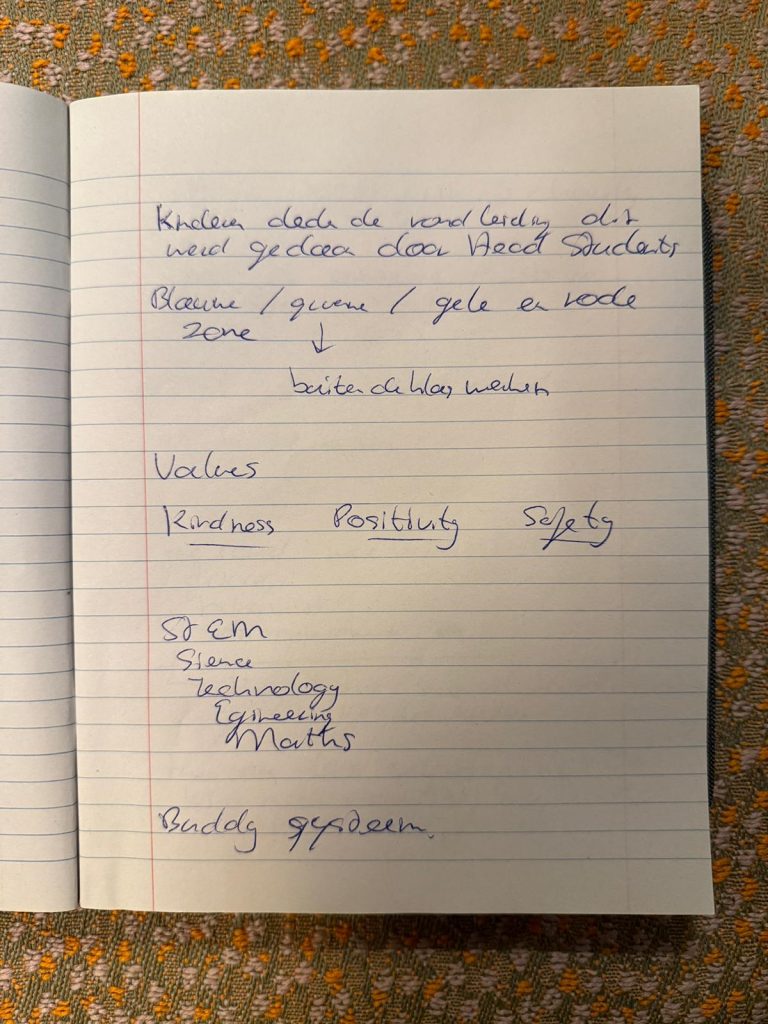 Kinderen deden de rondleiding dit
werd gedaan door Head Students
Blauwe / groene / gele en rode
zone ↓
buiten de klas werken
Values
Kindness Positivity Safety
STEM
Sience
Technology
Egineering
Maths
Buddy systeem.